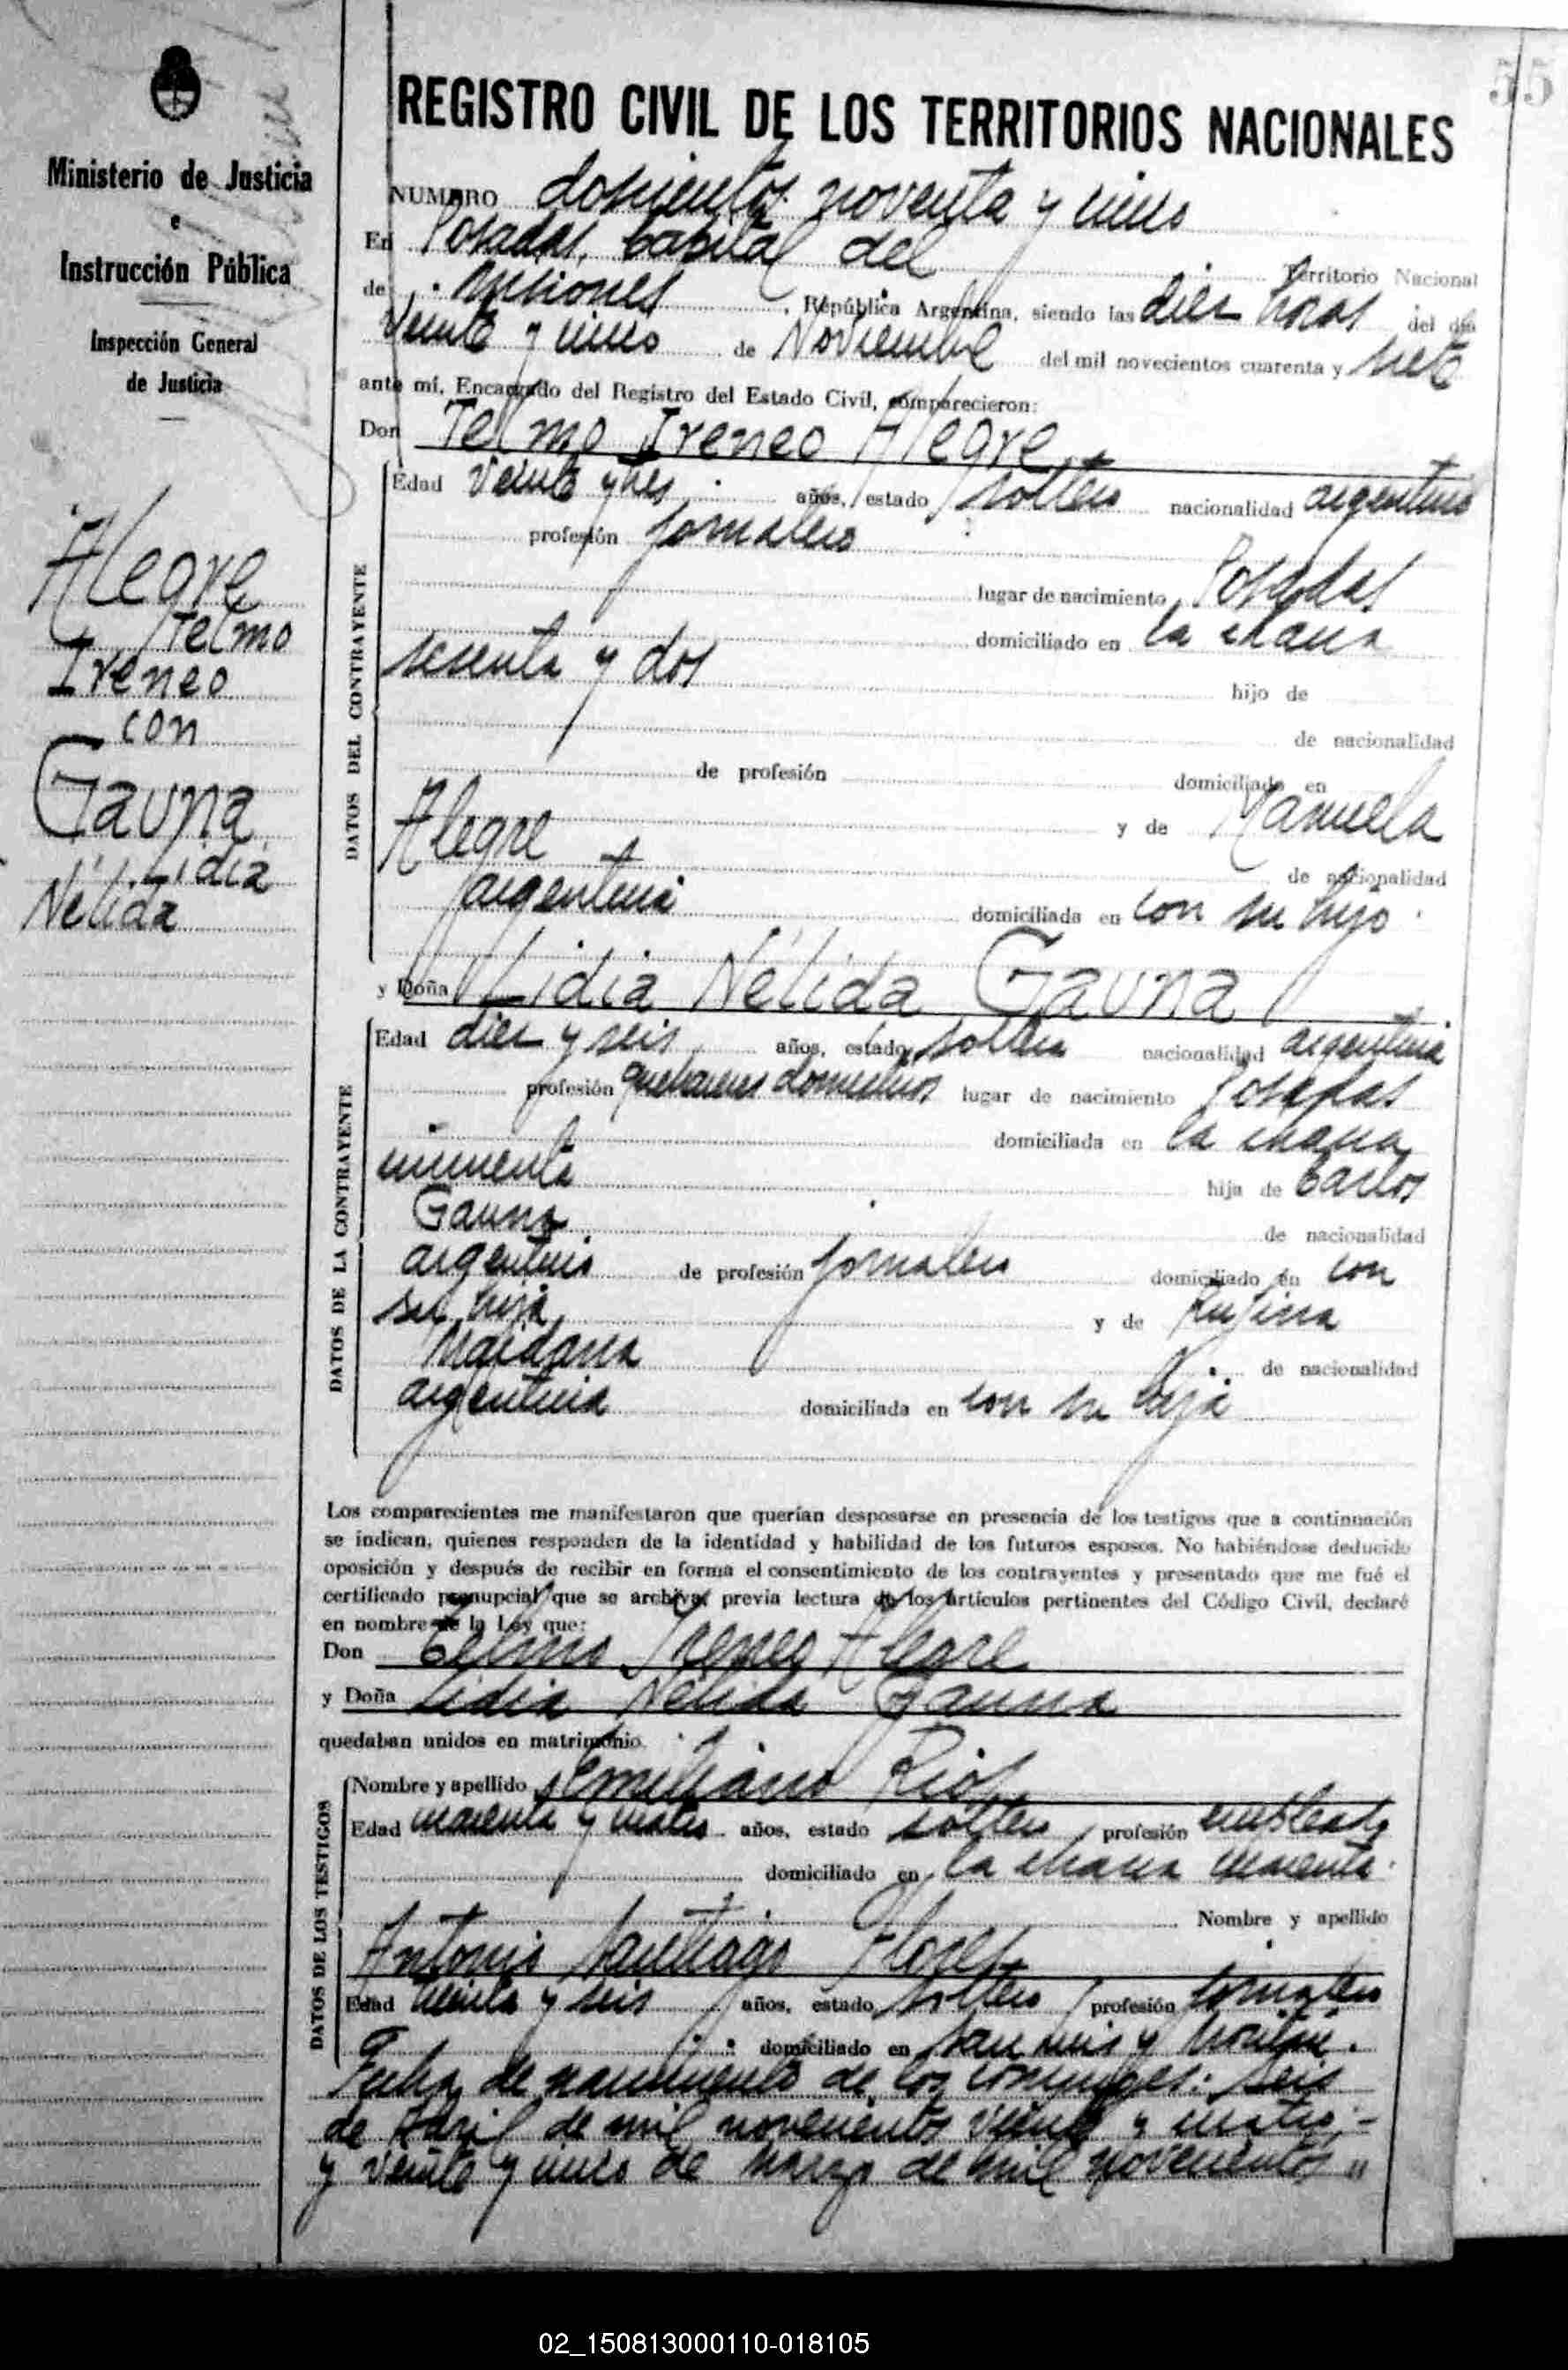 55
REGISTRO CIVIL DE LOS TERRITORIOS NACIONALES
Ministerio de Justicia
e
Instrucción Pública
Inspección General
de Justicia
Alegre
Telmo
Ireneo
con
Gauna
Lidia
Nélida
NUMERO doscientos noventa y uno
En Posadas, Capital del Territorio Nacional
de Misiones, República Argentina, siendo las diez horas del día
veinte y uno de Noviembre del mil novecientos cuarenta y siete
ante mí, Encargado del Registro del Estado Civil, comparecieron:
Don Telmo Ireneo Alegre
DATOS DEL CONTRAYENTE
Edad veinte y tres años, estado soltero nacionalidad argentino
profesión jornalero
lugar de nacimiento Posadas
domiciliado en la chacra
sesenta y dos hijo de
de nacionalidad
de profesión domiciliado en
y de Manuela
Alegre de nacionalidad
argentina domiciliada en con su hijo
y Doña Lidia Nélida Gauna
DATOS DE LA CONTRAYENTE
Edad diez y seis años, estado soltera nacionalidad argentina
profesión quehaceres domésticos lugar de nacimiento Posadas
domiciliada en la chacra
hija de Carlos
Gauna de nacionalidad
argentino de profesión jornalero domiciliado en con
su hija y de Rufina
Maidana de nacionalidad
argentina domiciliada en con su hija
Los comparecientes me manifestaron que querían desposarse en presencia de los testigos que a continuación
se indican, quienes responden de la identidad y habilidad de los futuros esposos. No habiéndose deducido
oposición y después de recibir en forma el consentimiento de los contrayentes y presentado que me fué el
certificado prenupcial que se archiva, previa lectura de los artículos pertinentes del Código Civil, declaré
en nombre de la Ley que:
Don Telmo Ireneo Alegre
y Doña Lidia Nélida Gauna
quedaban unidos en matrimonio.
DATOS DE LOS TESTIGOS
Nombre y apellido Emiliano Rios
Edad cuarenta y cuatro años, estado soltero profesión empleado
domiciliado en la chacra cuarenta
Nombre y apellido
Antonio Santiago Flores
Edad treinta y seis años, estado soltero profesión jornalero
domiciliado en San Luis y
Fecha de nacimiento de los cónyuges: seis
de Abril de mil novecientos veinte y cuatro.-
y veinte y uno de Marzo de mil novecientos "
02_150813000110-018105